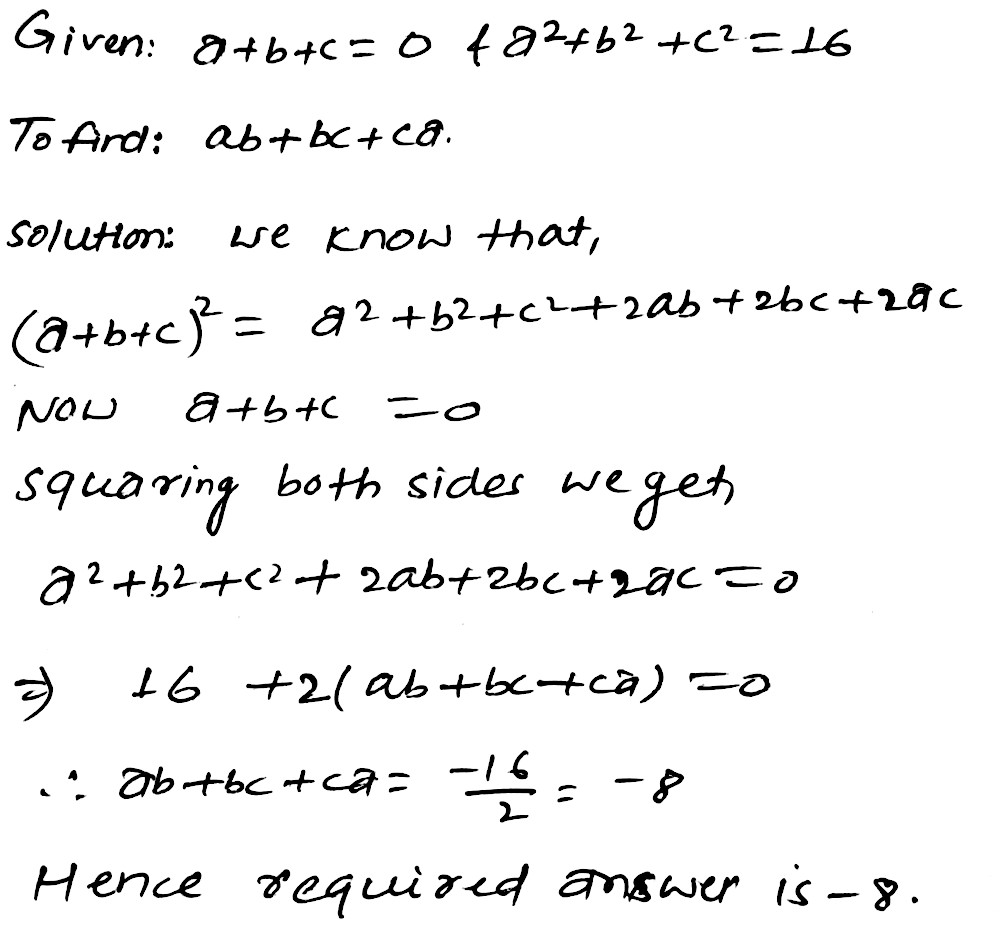 Given: a+b+c = 0 & a²+b²+c² = 16
To find: ab+bc+ca.
solution: we know that,
(a+b+c)² = a²+b²+c²+2ab+2bc+2ac
Now a+b+c = 0
squaring both sides we get
a²+b²+c²+ 2ab+2bc+2ac = 0
⇒ 16 +2(ab+bc+ca) = 0
∴ ab+bc+ca = -16/2 = -8
Hence required answer is -8.